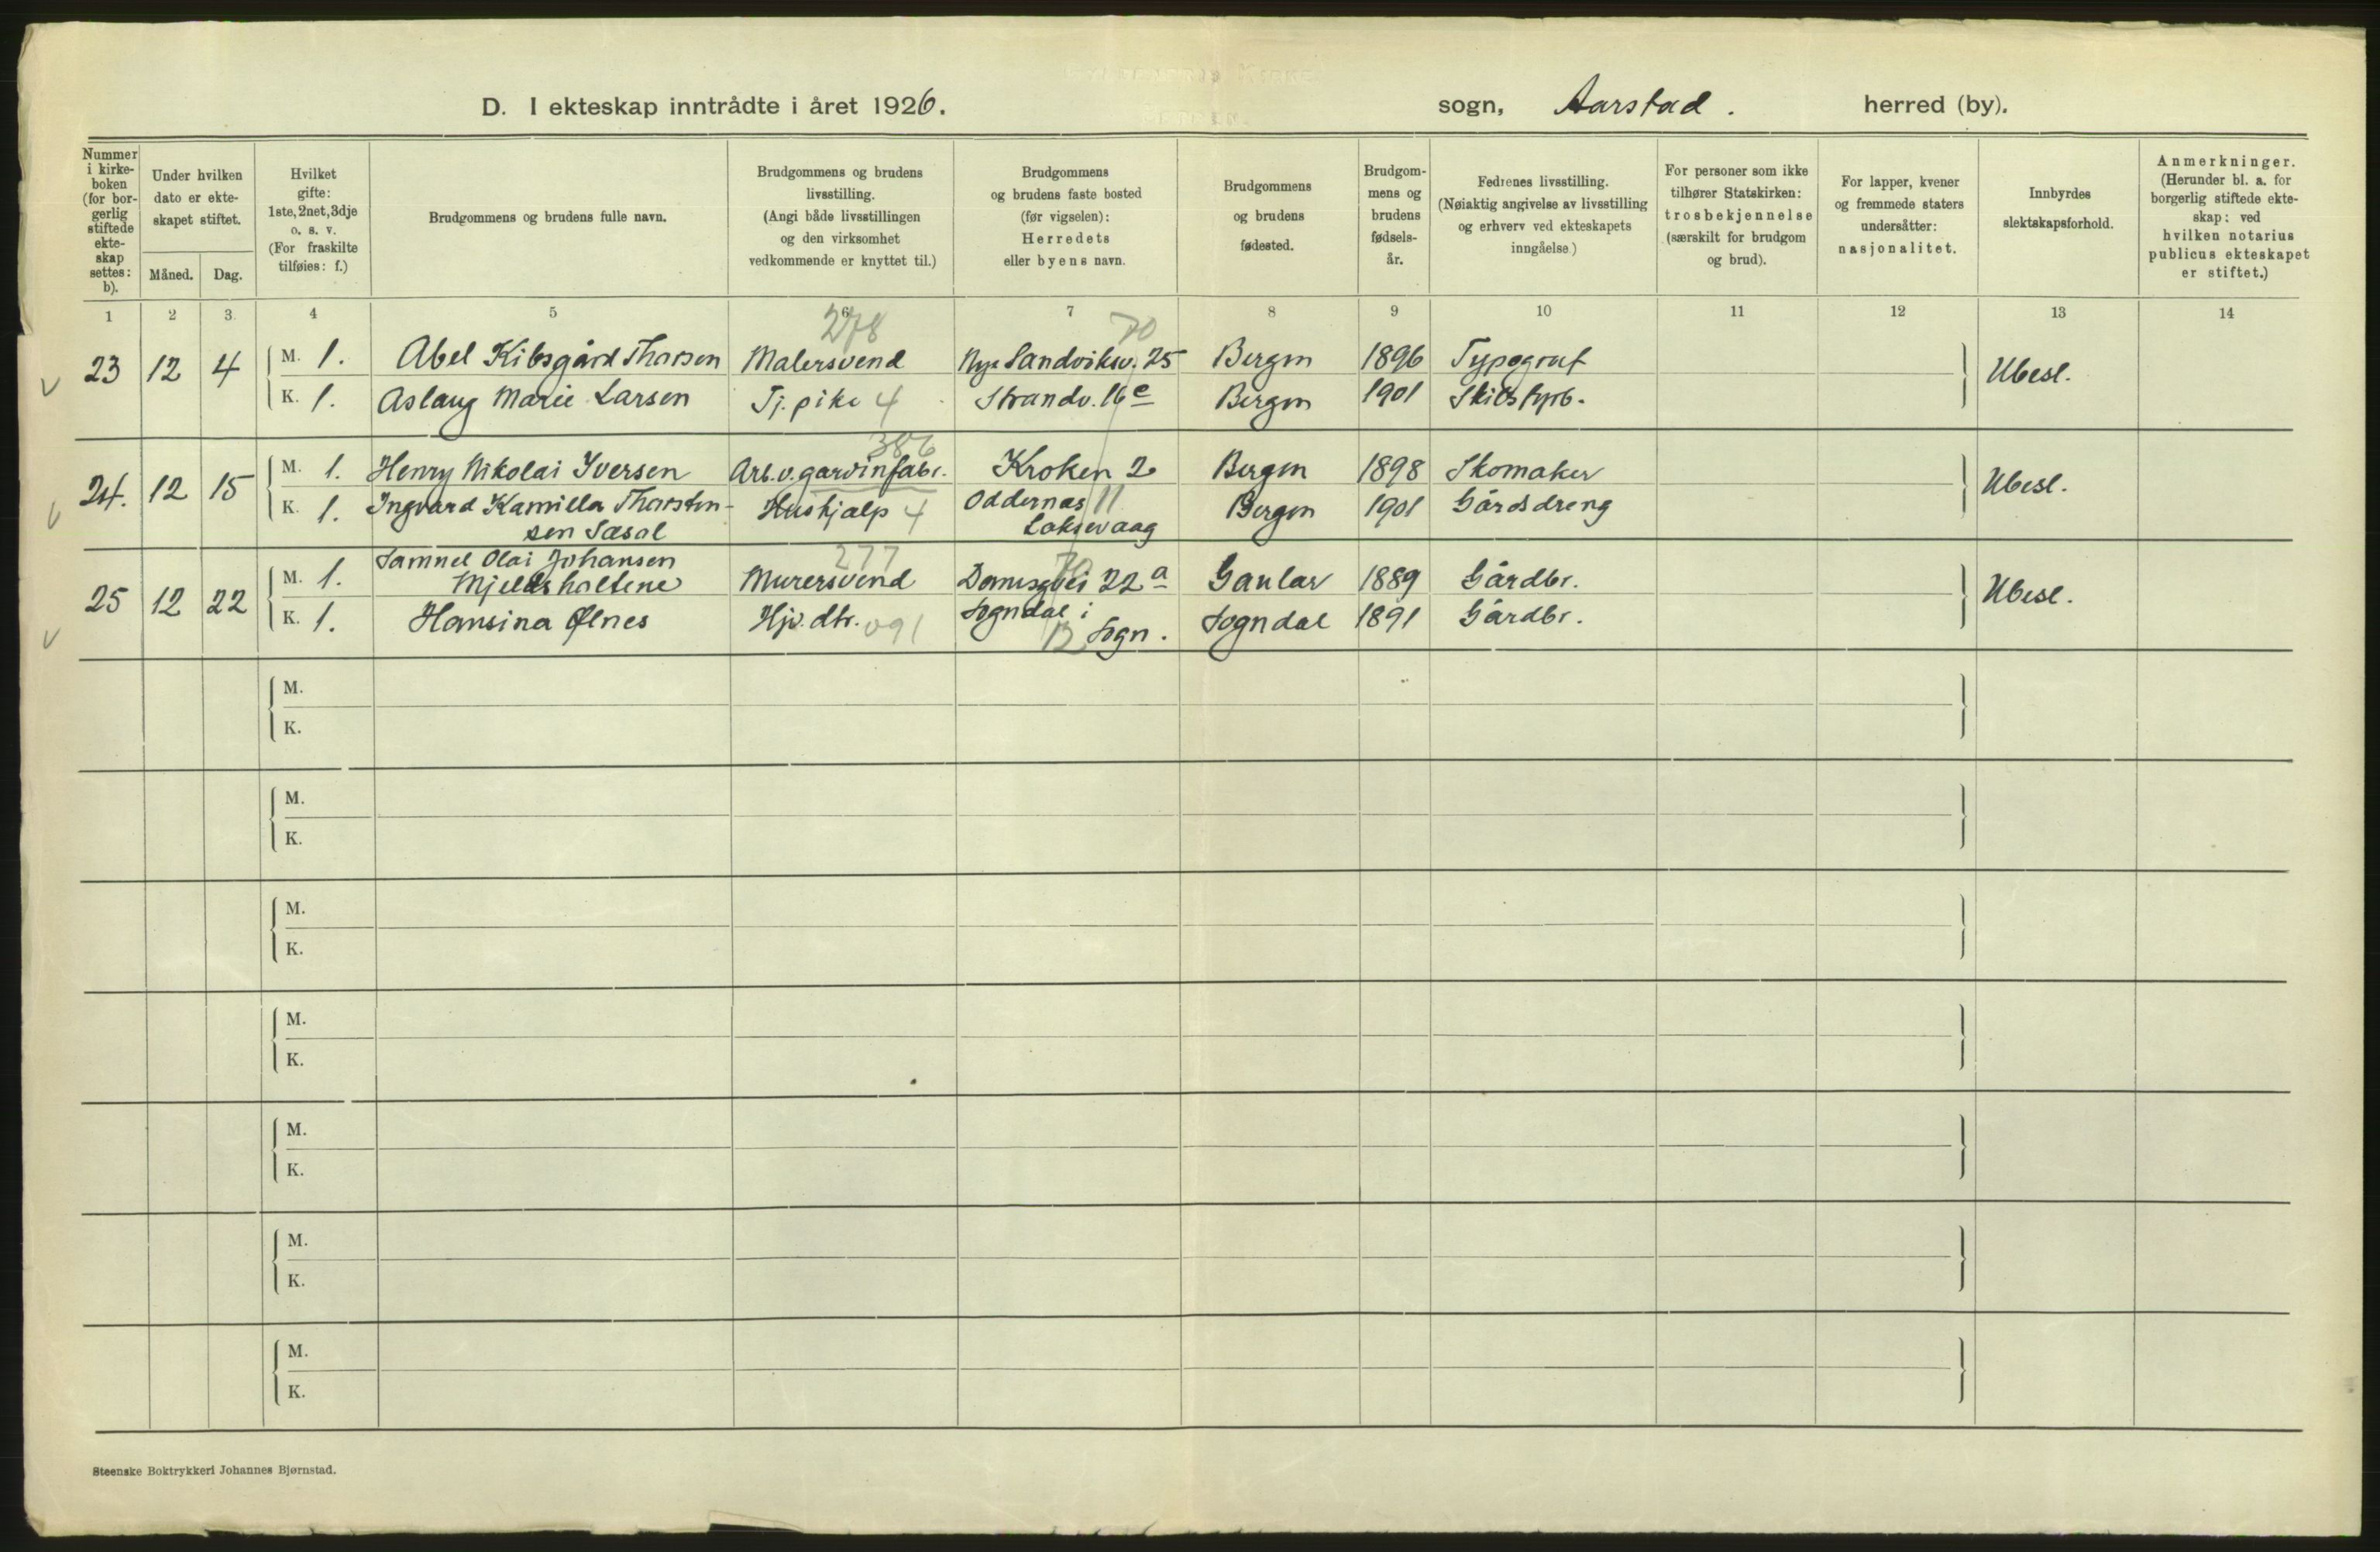 D. I ekteskap inntrådte i året 1926. sogn, Aarstad. herred (by).
Nummer i kirke-boken (for bor-gerlig stiftede ekte-skap settes: b).
Under hvilken dato er ekte-skapet stiftet.
Måned. Dag.
Hvilket gifte: 1ste, 2net, 3dje o. s. v. (For fraskilte tilføies: f.)
Brudgommens og brudens fulle navn.
Brudgommens og brudens livsstilling. (Angi både livsstillingen og den virksomhet vedkommende er knyttet til.)
Brudgommens og brudens faste bosted (før vigselen): Herredets eller byens navn.
Brudgommens og brudens fødested.
Brudgom-mens og brudens fødsels-år.
Fedrenes livsstilling. (Nøiaktig angivelse av livsstilling og erhverv ved ekteskapets inngåelse)
For personer som ikke tilhører Statskirken: trosbekjennelse (særskilt for brudgom og brud).
For lapper, kvener og fremmede staters undersåtter: nasjonalitet.
Innbyrdes slektskapsforhold.
Anmerkninger. (Herunder bl. a. for borgerlig stiftede ekte-skap: ved hvilken notarius publicus ekteskapet er stiftet.)
1 2 3 4 5 6 7 8 9 10 11 12 13 14
278 70
23 12 4 M. 1. Abel Kibsgård Thorsen Malersvend Nye Sandviksv. 25 Bergen 1896 Typograf Ubesl.
K. 1. Aslaug Marie Larsen Tj. pike 4 Strandv. 16 c Bergen 1901 Skibstyrb.
386
24. 12 15 M. 1. Henry Nikolai Iversen Arb. v. garvinfabr. Kroken 2 Bergen 1898 Skomaker Ubesl.
K. 1. Ingvard Kamilla Thorsten-sen Sæsol Hushjælp 4 Oddernæs 11 Laksevaag Bergen 1901 Gårdsdreng
277 70
25 12 22 M. 1. Samuel Olai Johansen Mjeldsholtene Murersvend 22 a Gaular 1889 Gårdbr. Ubesl.
K. 1. Hansina Ølnes Hjv. dtr. 091 Sogndal i Sogn. 13 Sogndal 1891 Gårdbr.
M.
K.
M.
K.
M.
K.
M.
K.
M.
K.
M.
K.
M.
K.
Steenske Boktrykkeri Johannes Bjørnstad.